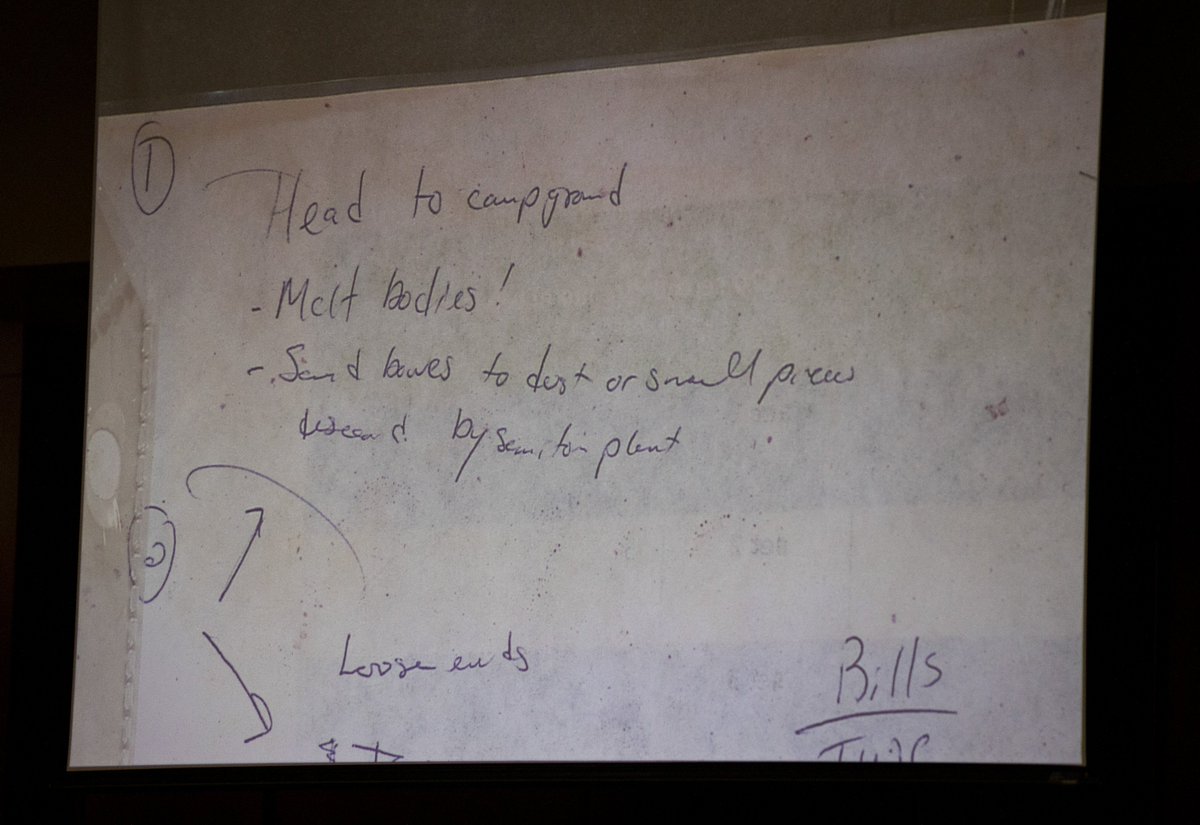 1
Head to campground
- Melt bodies!
- Sand bones to dust or small pieces
discard by
2
Loose ends
Bills